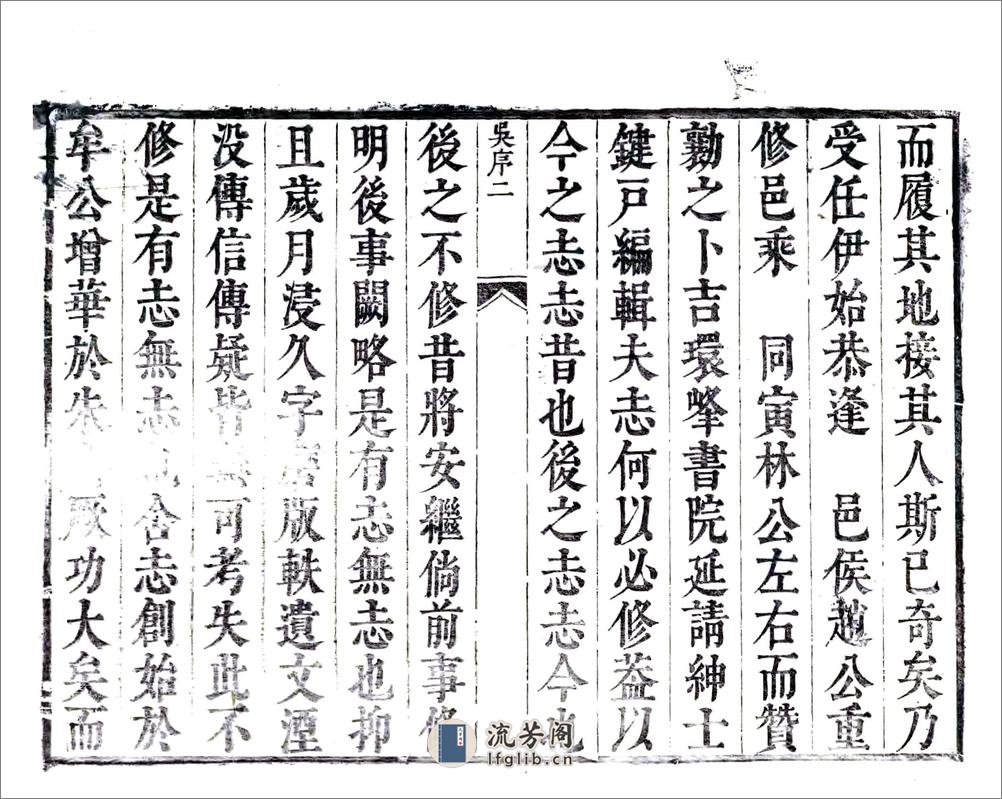 而履其地接其人斯已奇矣乃
受任伊始恭逢　邑侯趙公重
修邑乘　同寅林公左右而贊
勷之卜吉環峰書院延請紳士
鍵戸編輯夫志何以必修葢以
今之志志昔也後之志志今也
吳序二
後之不修昔將安繼倘前事修
明後事闕略是有志無志也抑
且歲月浸久字版軼遺文湮
没傳信傳疑皆可考失此不
修是有志無志舍志創始於
牟公增華於朱功大矣而
流芳阁
lfglib.cn